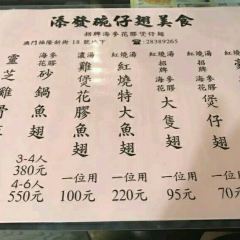 添發碗仔翅美食
招牌海參花膠煲仔翅
澳門福隆新街 18 號地下 ☎28389265
靈芝
海參花膠
砂鍋魚翅
3-4人
380元
4-6人
550元
濃湯
雞煲花膠魚翅
一位用
100元
紅燒湯
紅燒特大魚翅
一位用
220元
紅燒湯
招牌
大隻翅
一位用
95元
紅燒湯
招牌
海參花膠
煲仔翅
一位
70元